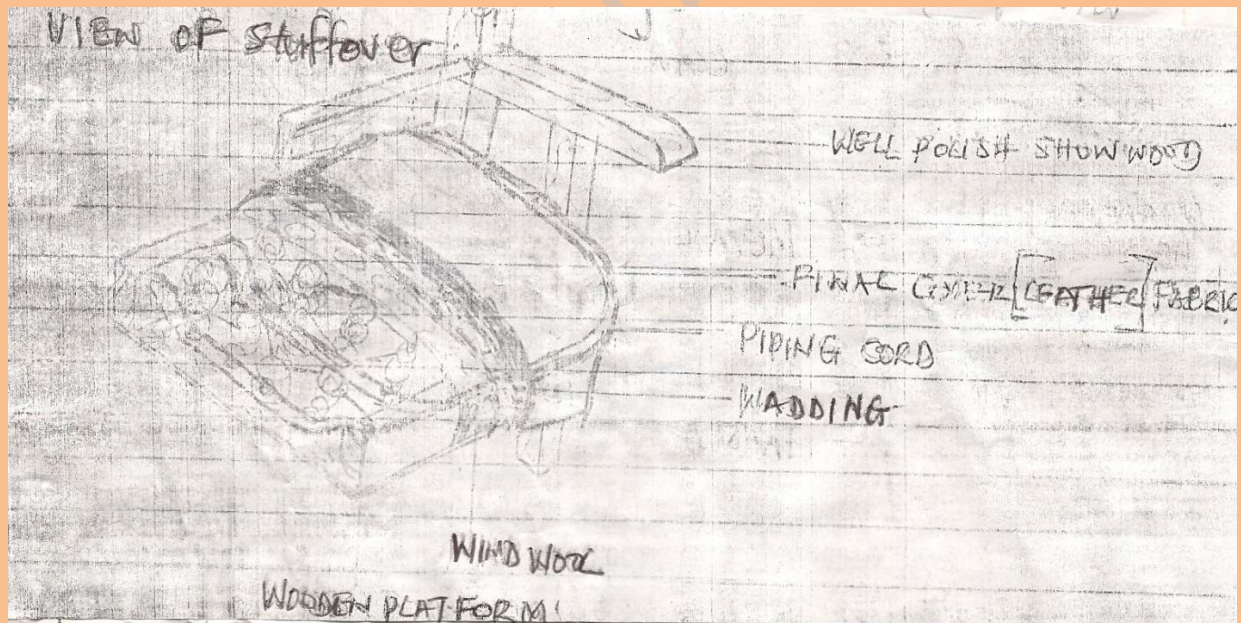 VIEW OF Stuffover
WELL POLISH SHOWWOOD
FINAL COVER [LEATHER] FABRIC
PIPING CORD
WADDING
WIND WOOL
WOODEN PLATFORM